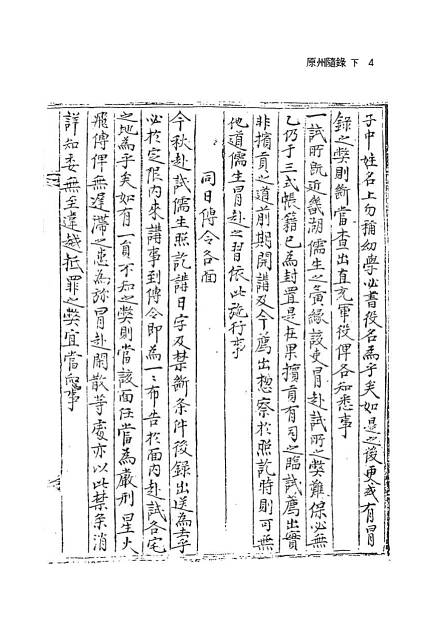 原州隨錄 下 4
子中姓名上勿稱幼學必書役名爲乎矣如是之後更或有冒
錄之弊則斷當查出直充軍役俾各知悉事
一試所既近畿湖儒生之夤緣該吏冒赴試所之弊難保必無
乙仍于三式帳籍已爲封置是在果擯貢有司之臨試薦出實
非擯貢之道前期開講及今薦出摠察於照訖時則可無
他道儒生冒赴之習依此施行事
同日傳令各面
今秋赴試儒生照訖講日字及禁斷条件後錄出送爲去乎
必於定限內來講事到傳令即爲一一布告於面內赴試各宅
之地爲乎矣如有一員不知之弊則當該面任當爲嚴刑星火
飛傳俾無遲滯之患爲旀冒赴開散等處亦以此禁条消
詳知委無至違越抵罪之弊宜當向事